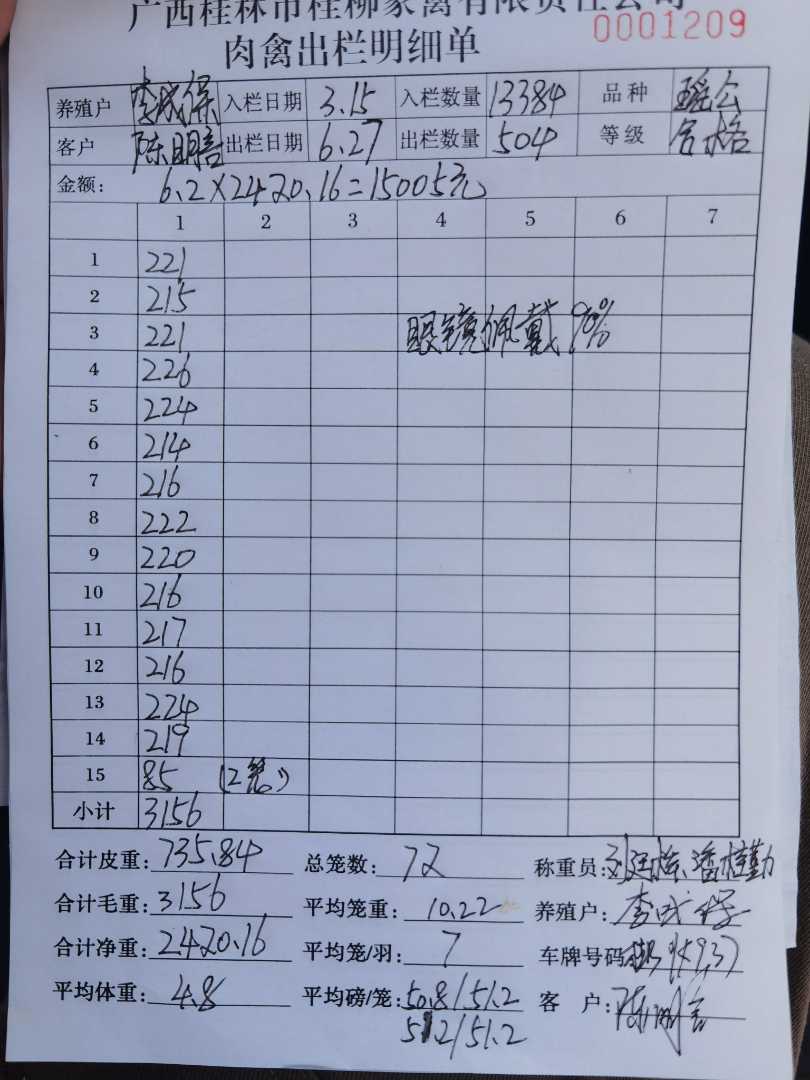 广西桂林市桂柳家禽有限责任公司
肉禽出栏明细单 0001209
养殖户 李成保 入栏日期 3.15 入栏数量 13384 品种 瑶公
客户 陈明言 出栏日期 6.27 出栏数量 504 等级 合格
金额: 6.2×2420.16=15005元
1 2 3 4 5 6 7
1 221
2 215
3 221 眼镜佩戴90%
4 226
5 224
6 214
7 216
8 222
9 220
10 216
11 217
12 216
13 224
14 219
15 85 (2笼)
小计 3156
合计皮重: 735.84 总笼数: 72 称重员:
合计毛重: 3156 平均笼重: 10.22 养殖户: 李成保
合计净重: 2420.16 平均笼/羽: 7 车牌号码
平均体重: 4.8 平均磅/笼: 50.8/51.2 客 户:
51.2/51.2